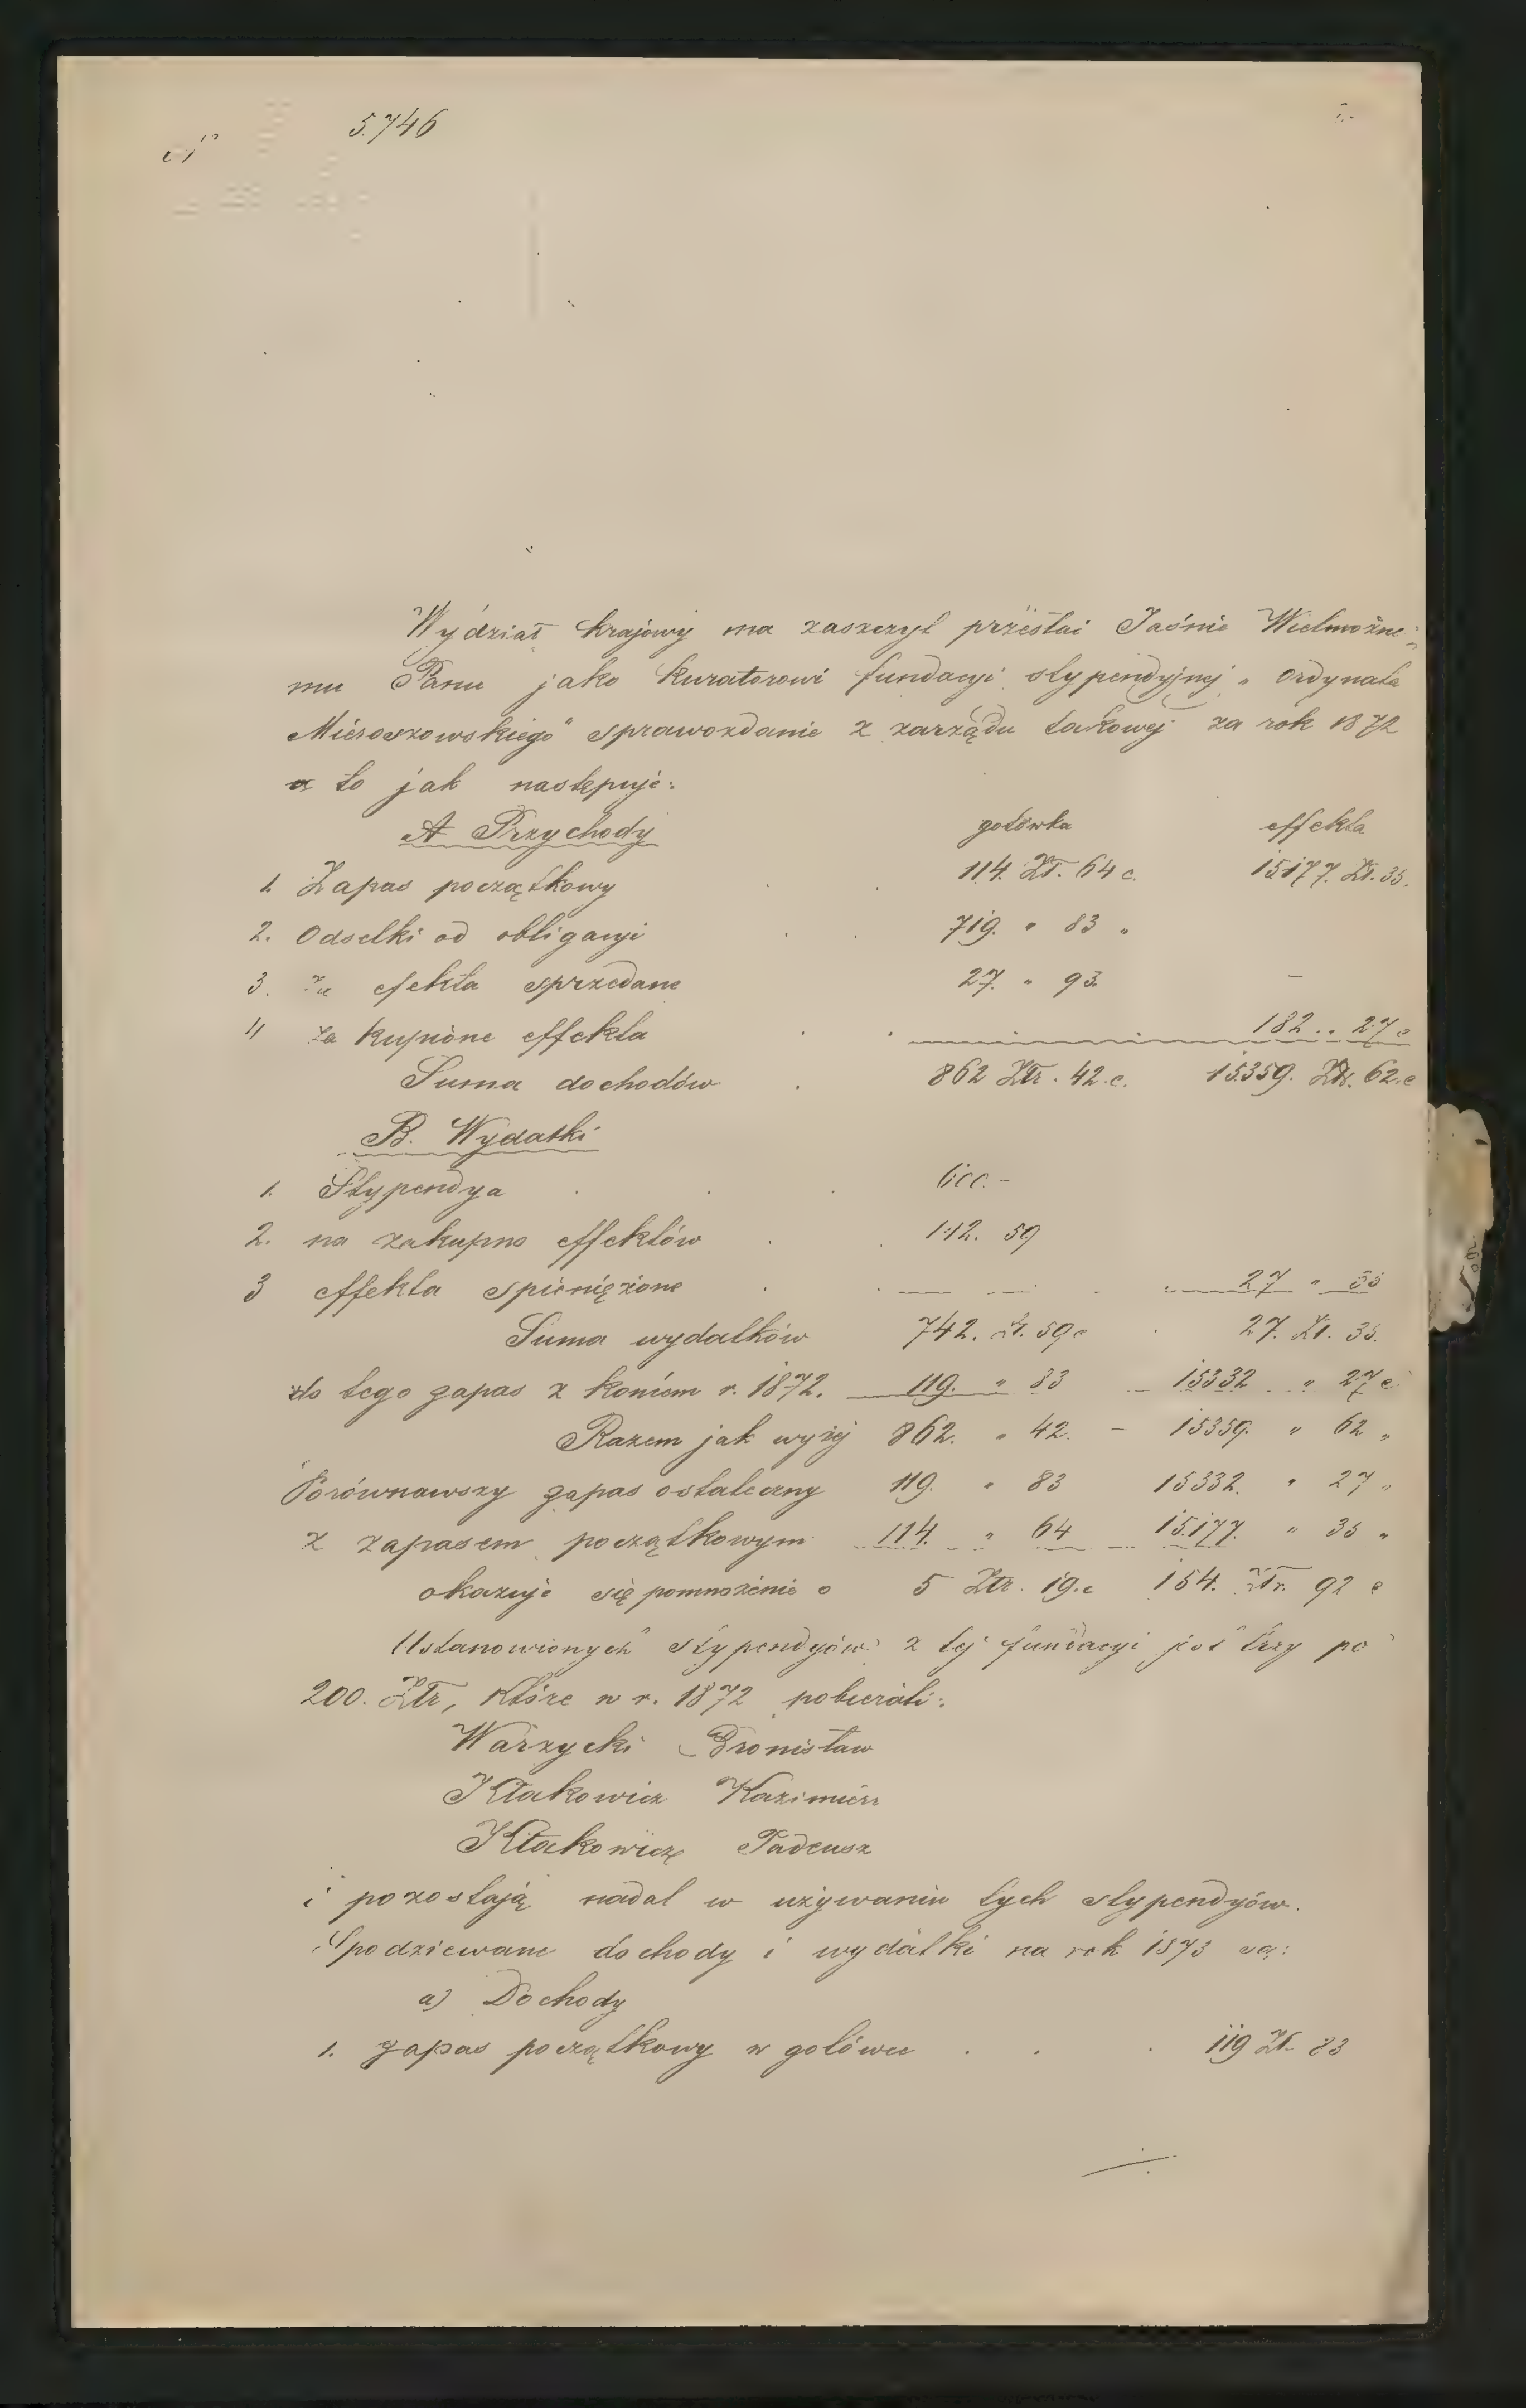 N 5.746
Wydział krajowy ma zaszczyt przesłać Jaśnie Wielmożne-
mu Panu jako kuratorowi fundacyi stypendyjnej „Ordynata
Mieroszowskiego" sprawozdanie z zarządu takowej za rok 1872
a to jak następuje:
A Przychody gotówka effekta
1. Zapas początkowy 114. Zł. 64 c. 15177. Zł. 35.
2. Odsetki od obligacyi 719. " 83 "
3. Za efekta sprzedane 27. " 95. –
4 za kupione effekta 182 .. 27 c
Suma dochodów 862 Złr. 42. c. 15359. Złr. 62. c
B. Wydatki
1. Stypendya 600. –
2. na zakupno effektów 142. 59
3 effekta spieniężone 27 " 35
Suma wydatków 742. Zł. 59 c 27. Zł. 35.
do tego zapas z końcem r. 1872. 119. " 83 15332 " 27 c.
Razem jak wyżej 862. " 42. – 15359. " 62 "
Porównawszy zapas ostateczny 119. " 83 15332. " 27 "
z zapasem początkowym 114. " 64 15.177. " 35 "
okazuje się pomnożenie o 5 Złr. 19. c 154. Złr. 92 c
Ustanowionych stypendyów z tej fundacyi jest trzy po
200. Złr, które w r. 1872 pobierali:
Warzycki Bronisław
Kłakowicz Kazimierz
Kłakowicz Tadeusz
i pozostają nadal w używaniu tych stypendyów.
Spodziewane dochody i wydatki na rok 1873 są:
a) Dochody
1. zapas początkowy w gotówce 119 Zł. 83